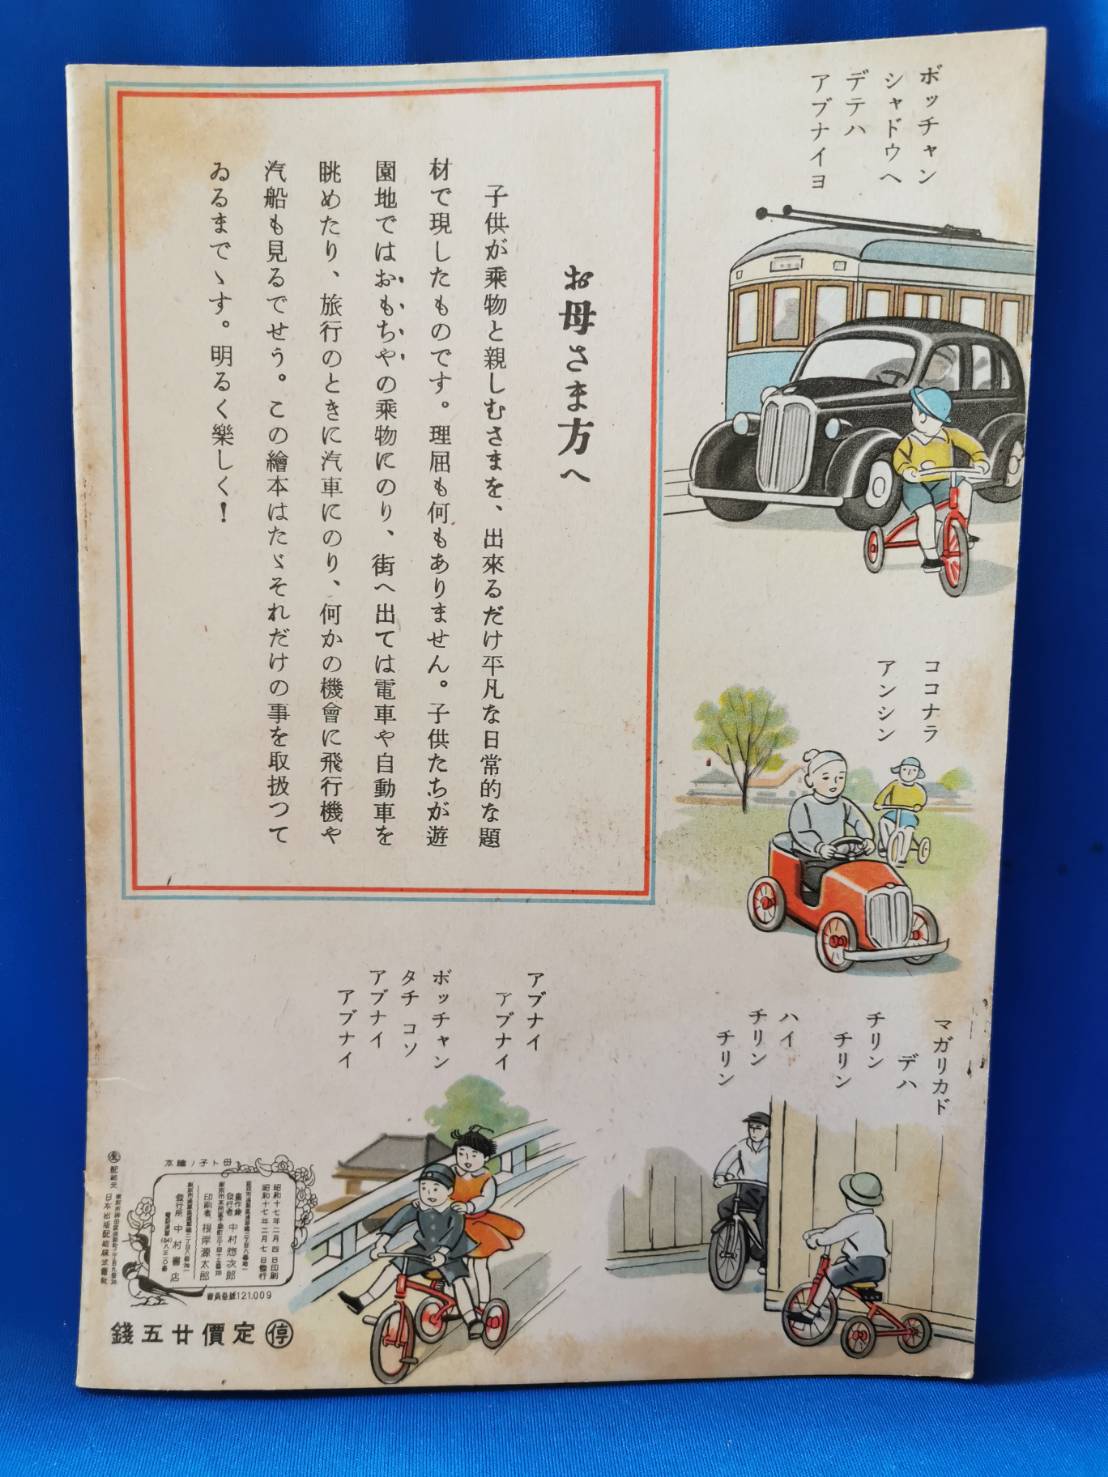 お母さま方へ
子供が乘物と親しむさまを、出來るだけ平凡な日常的な題
材で現したものです。理屈も何もありません。子供たちが遊
園地ではおもちやの乘物にのり、街へ出ては電車や自動車を
眺めたり、旅行のときに汽車にのり、何かの機會に飛行機や
汽船も見るでせう。この繪本はたゞそれだけの事を取扱つて
ゐるまでゝす。明るく樂しく!
ボッチャン
シャドウヘ
デテハ
アブナイヨ
ココナラ
アンシン
マガリカド
デハ
チリン
チリン
ハイ
チリン
チリン
アブナイ
アブナイ
ボッチャン
タチ コソ
アブナイ
アブナイ
本繪ノ子ト母
昭和十七年二月四日印刷
昭和十七年二月七日發行
發行者 中村惣次郎
印刷者 根岸源太郎
發行所 中村書店
日本出版配給株式會社
121.009
錢五廿價定 停